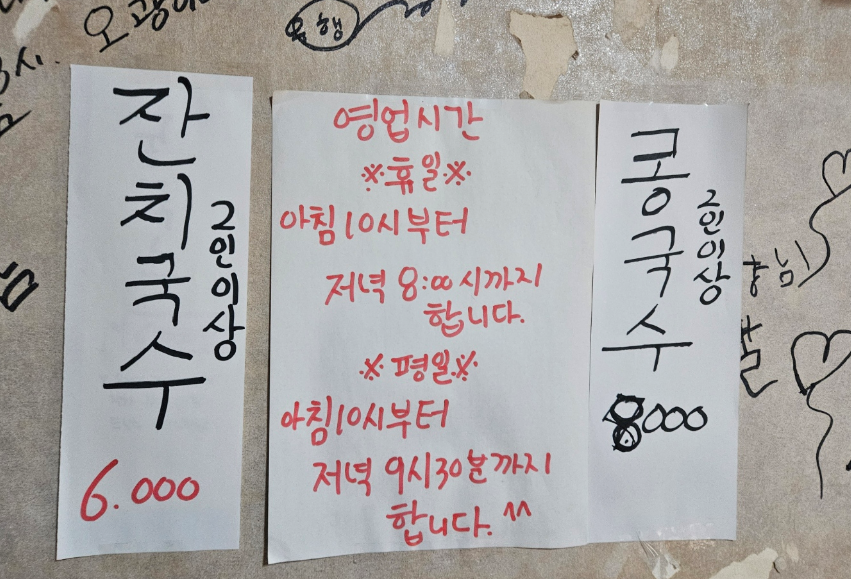 잔치국수
2인이상
6.000
영업시간
※휴일※
아침10시부터
저녁 8:00시까지
합니다.
※평일※
아침10시부터
저녁 9시30분까지
합니다.^^
콩국수
2인이상
8000